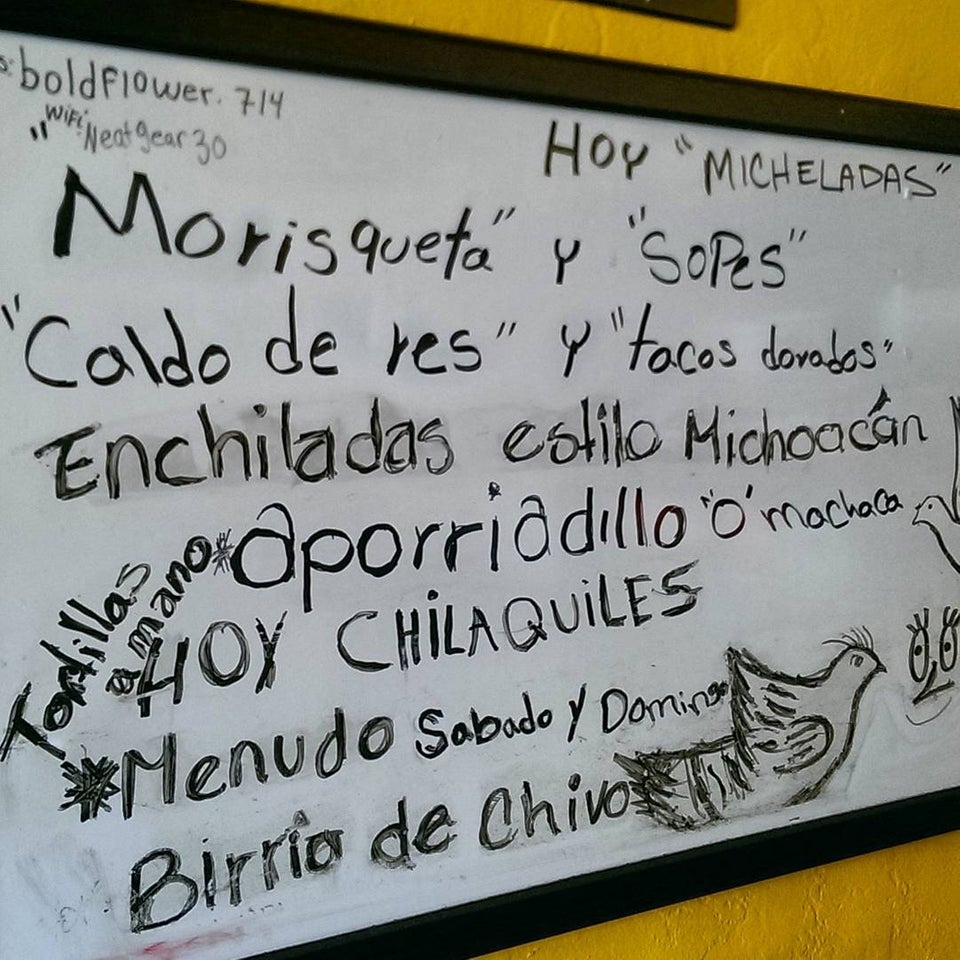 s: boldflower.714
"Wifi: Neatgear30
Hoy "MICHELADAS"
Morisqueta" y "SOPes"
"Caldo de res" y "tacos dorados"
Enchiladas estilo Michoacán
*aporriadillo "o' machaca
Tortillas
a mano
HOY CHILAQUILES
*Menudo Sabado y Domingo
Birria de Chivo